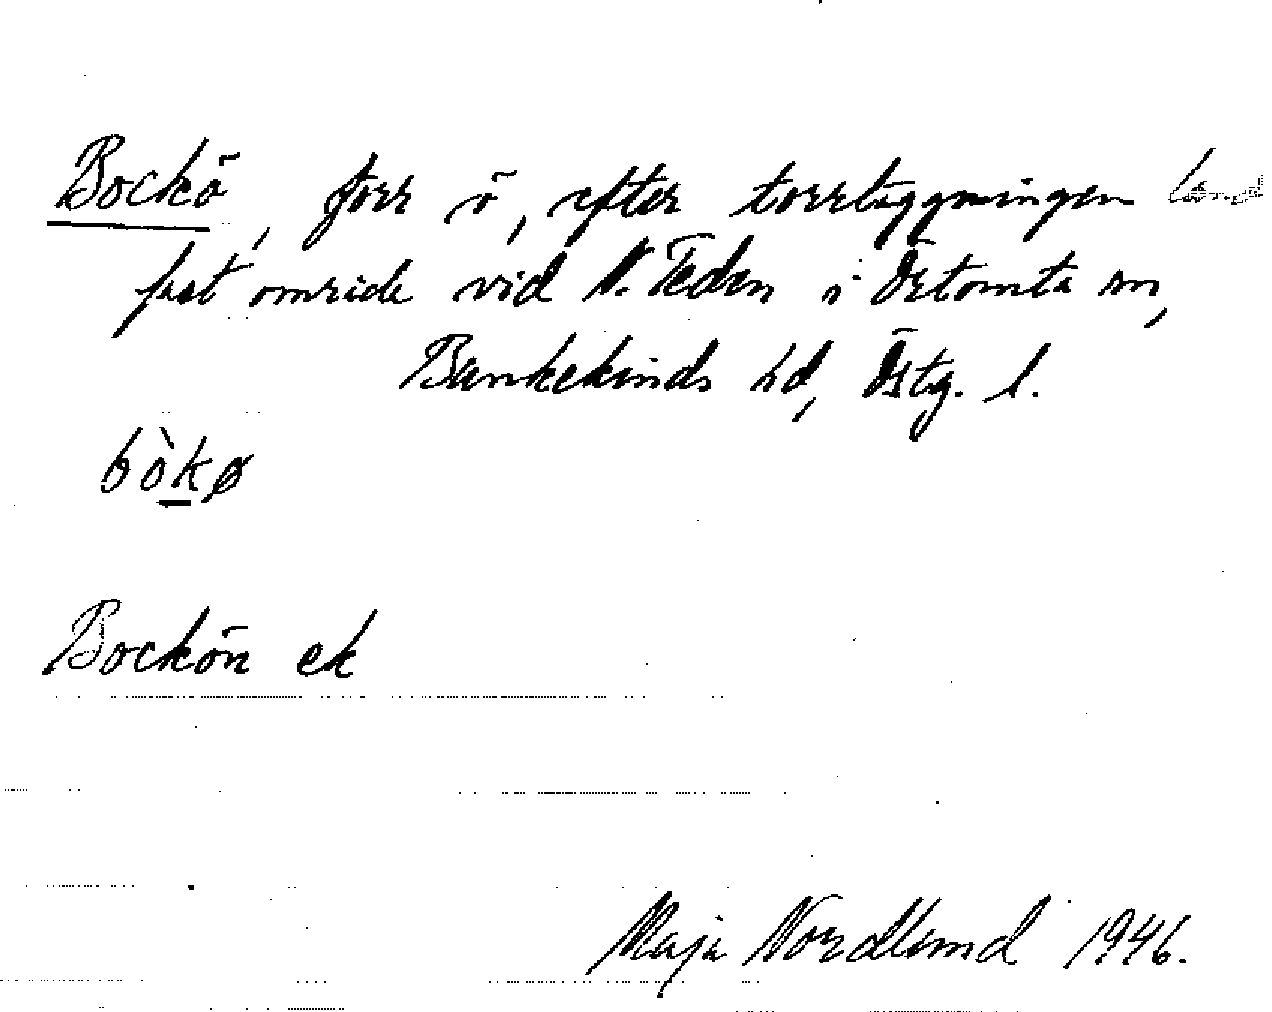 Bockö, förr ö, efter torrläggningen land
fast område vid N. Teden i Östomta sn,
Bankekinds hd, Östg. l.
bòkø
Bockön ek
Maja Nordlund 1946.